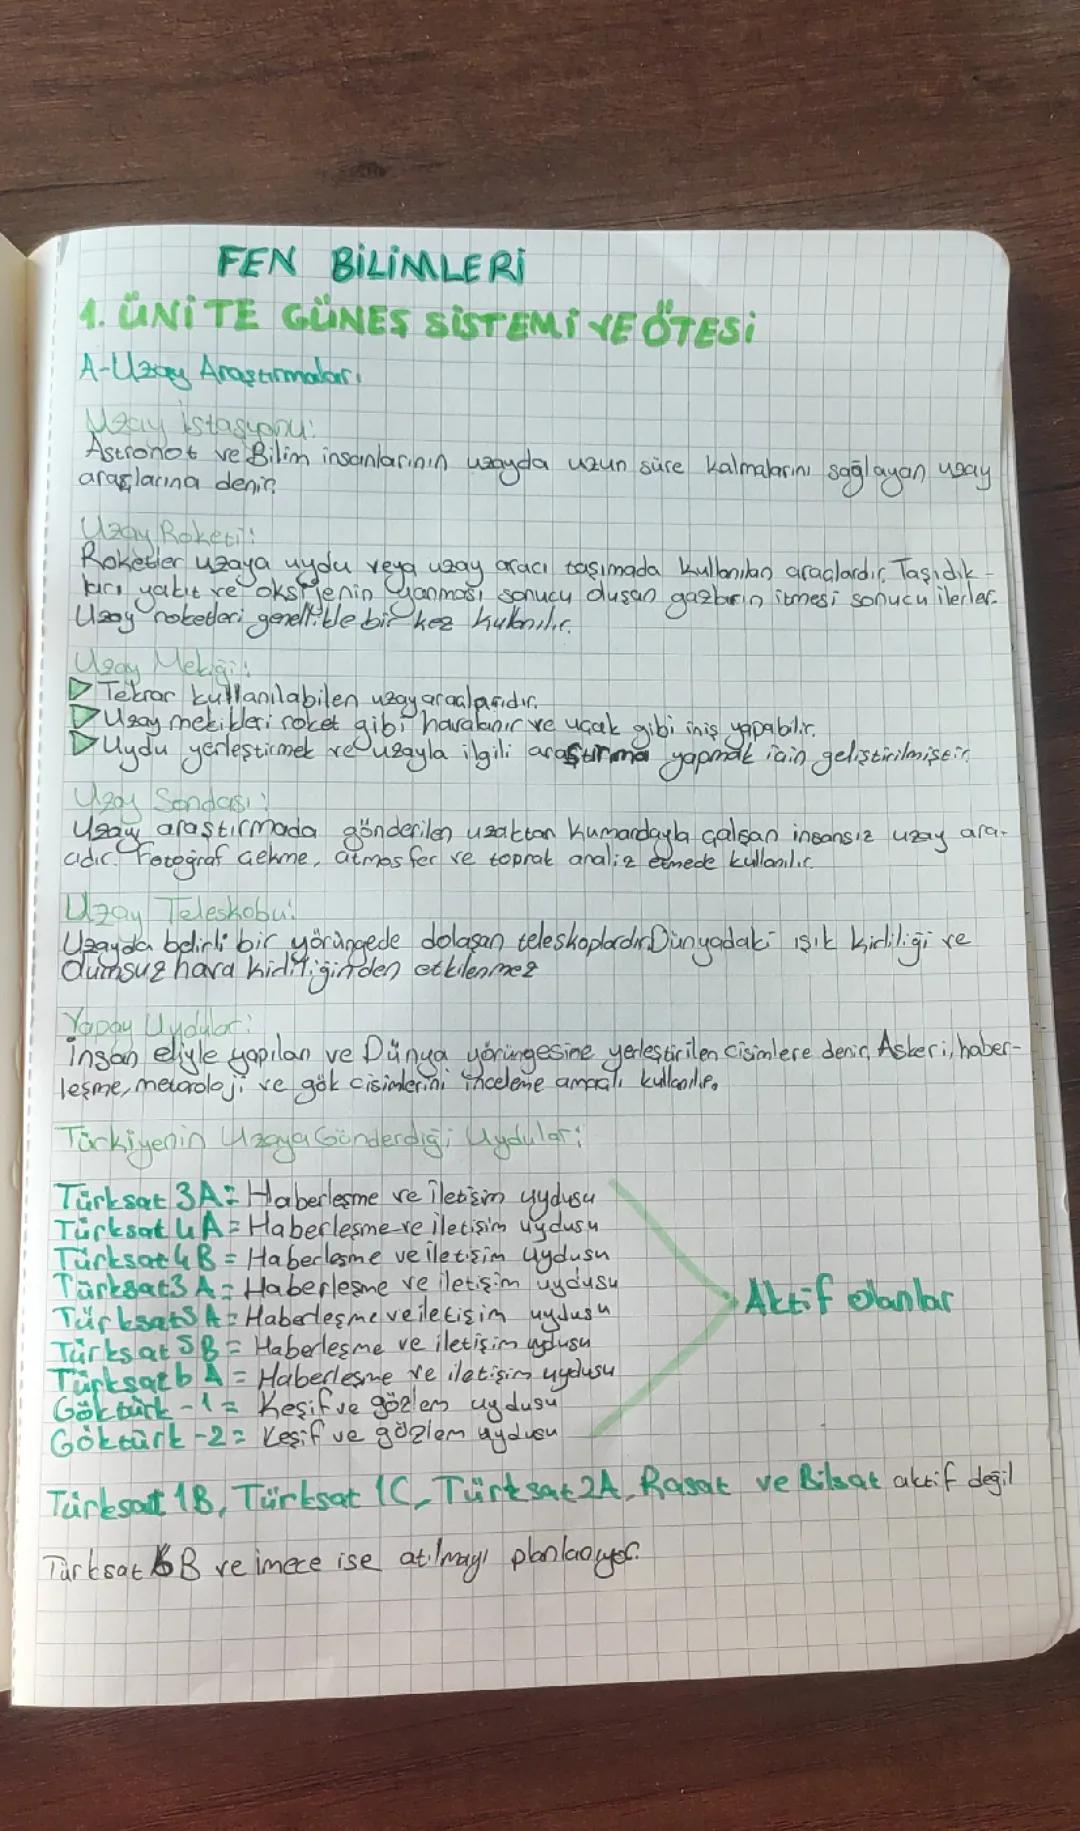 FEN BİLİMLERİ
1. ÜNİTE GÜNEŞ SİSTEMİ VE ÖTESİ
A-Uzay Araştırmaları
Uzay İstasyonu:
Astronot ve Bilim insanlarının uzayda uzun süre kalmalarını sağlayan uzay
araçlarına denir.
Uzay Roketi:
Roketler uzaya uydu veya uzay aracı taşımada kullanılan araçlardır. Taşıdık-
ları yakıt ve oksijenin yanması sonucu oluşan gazların itmesi sonucu ilerler.
Uzay roketleri genellikle bir kez kullanılır.
Uzay Mekiği:
Tekrar kullanılabilen uzay araçlarıdır.
Uzay mekikleri roket gibi havalanır ve uçak gibi iniş yapabilir.
Uydu yerleştirmek ve uzayla ilgili araştırma yapmak için geliştirilmiştir.
Uzay Sondası:
Uzay araştırmada gönderilen uzaktan kumandayla çalışan insansız uzay ara-
cıdır. Fotoğraf çekme, atmosfer ve toprak analiz etmede kullanılır.
Uzay Teleskobu:
Uzayda belirli bir yörüngede dolaşan teleskoplardır. Dünyadaki ışık kirliliği ve
olumsuz hava kirliliğinden etkilenmez
Yapay Uydular:
İnsan eliyle yapılan ve Dünya yörüngesine yerleştirilen cisimlere denir. Askeri, haber-
leşme, metoroloji ve gök cisimlerini inceleme amaçlı kullanılır.
Türkiyenin Uzaya Gönderdiği Uydular:
Türksat 3A = Haberleşme ve iletişim uydusu
Türksat 4A = Haberleşme ve iletişim uydusu
Türksat 4B = Haberleşme ve iletişim uydusu
Türksat 3A = Haberleşme ve iletişim uydusu
Türksat 5A = Haberleşme ve iletişim uydusu
Türksat 5B = Haberleşme ve iletişim uydusu
Türksat 6A = Haberleşme ve iletişim uydusu
Göktürk -1 = Keşif ve gözlem uydusu
Göktürk -2 = Keşif ve gözlem uydusu
Aktif olanlar
Türksat 1B, Türksat 1C, Türksat 2A, Rasat ve Bilsat aktif değil
Türksat 6B ve imece ise atılmayı planlanıyor.